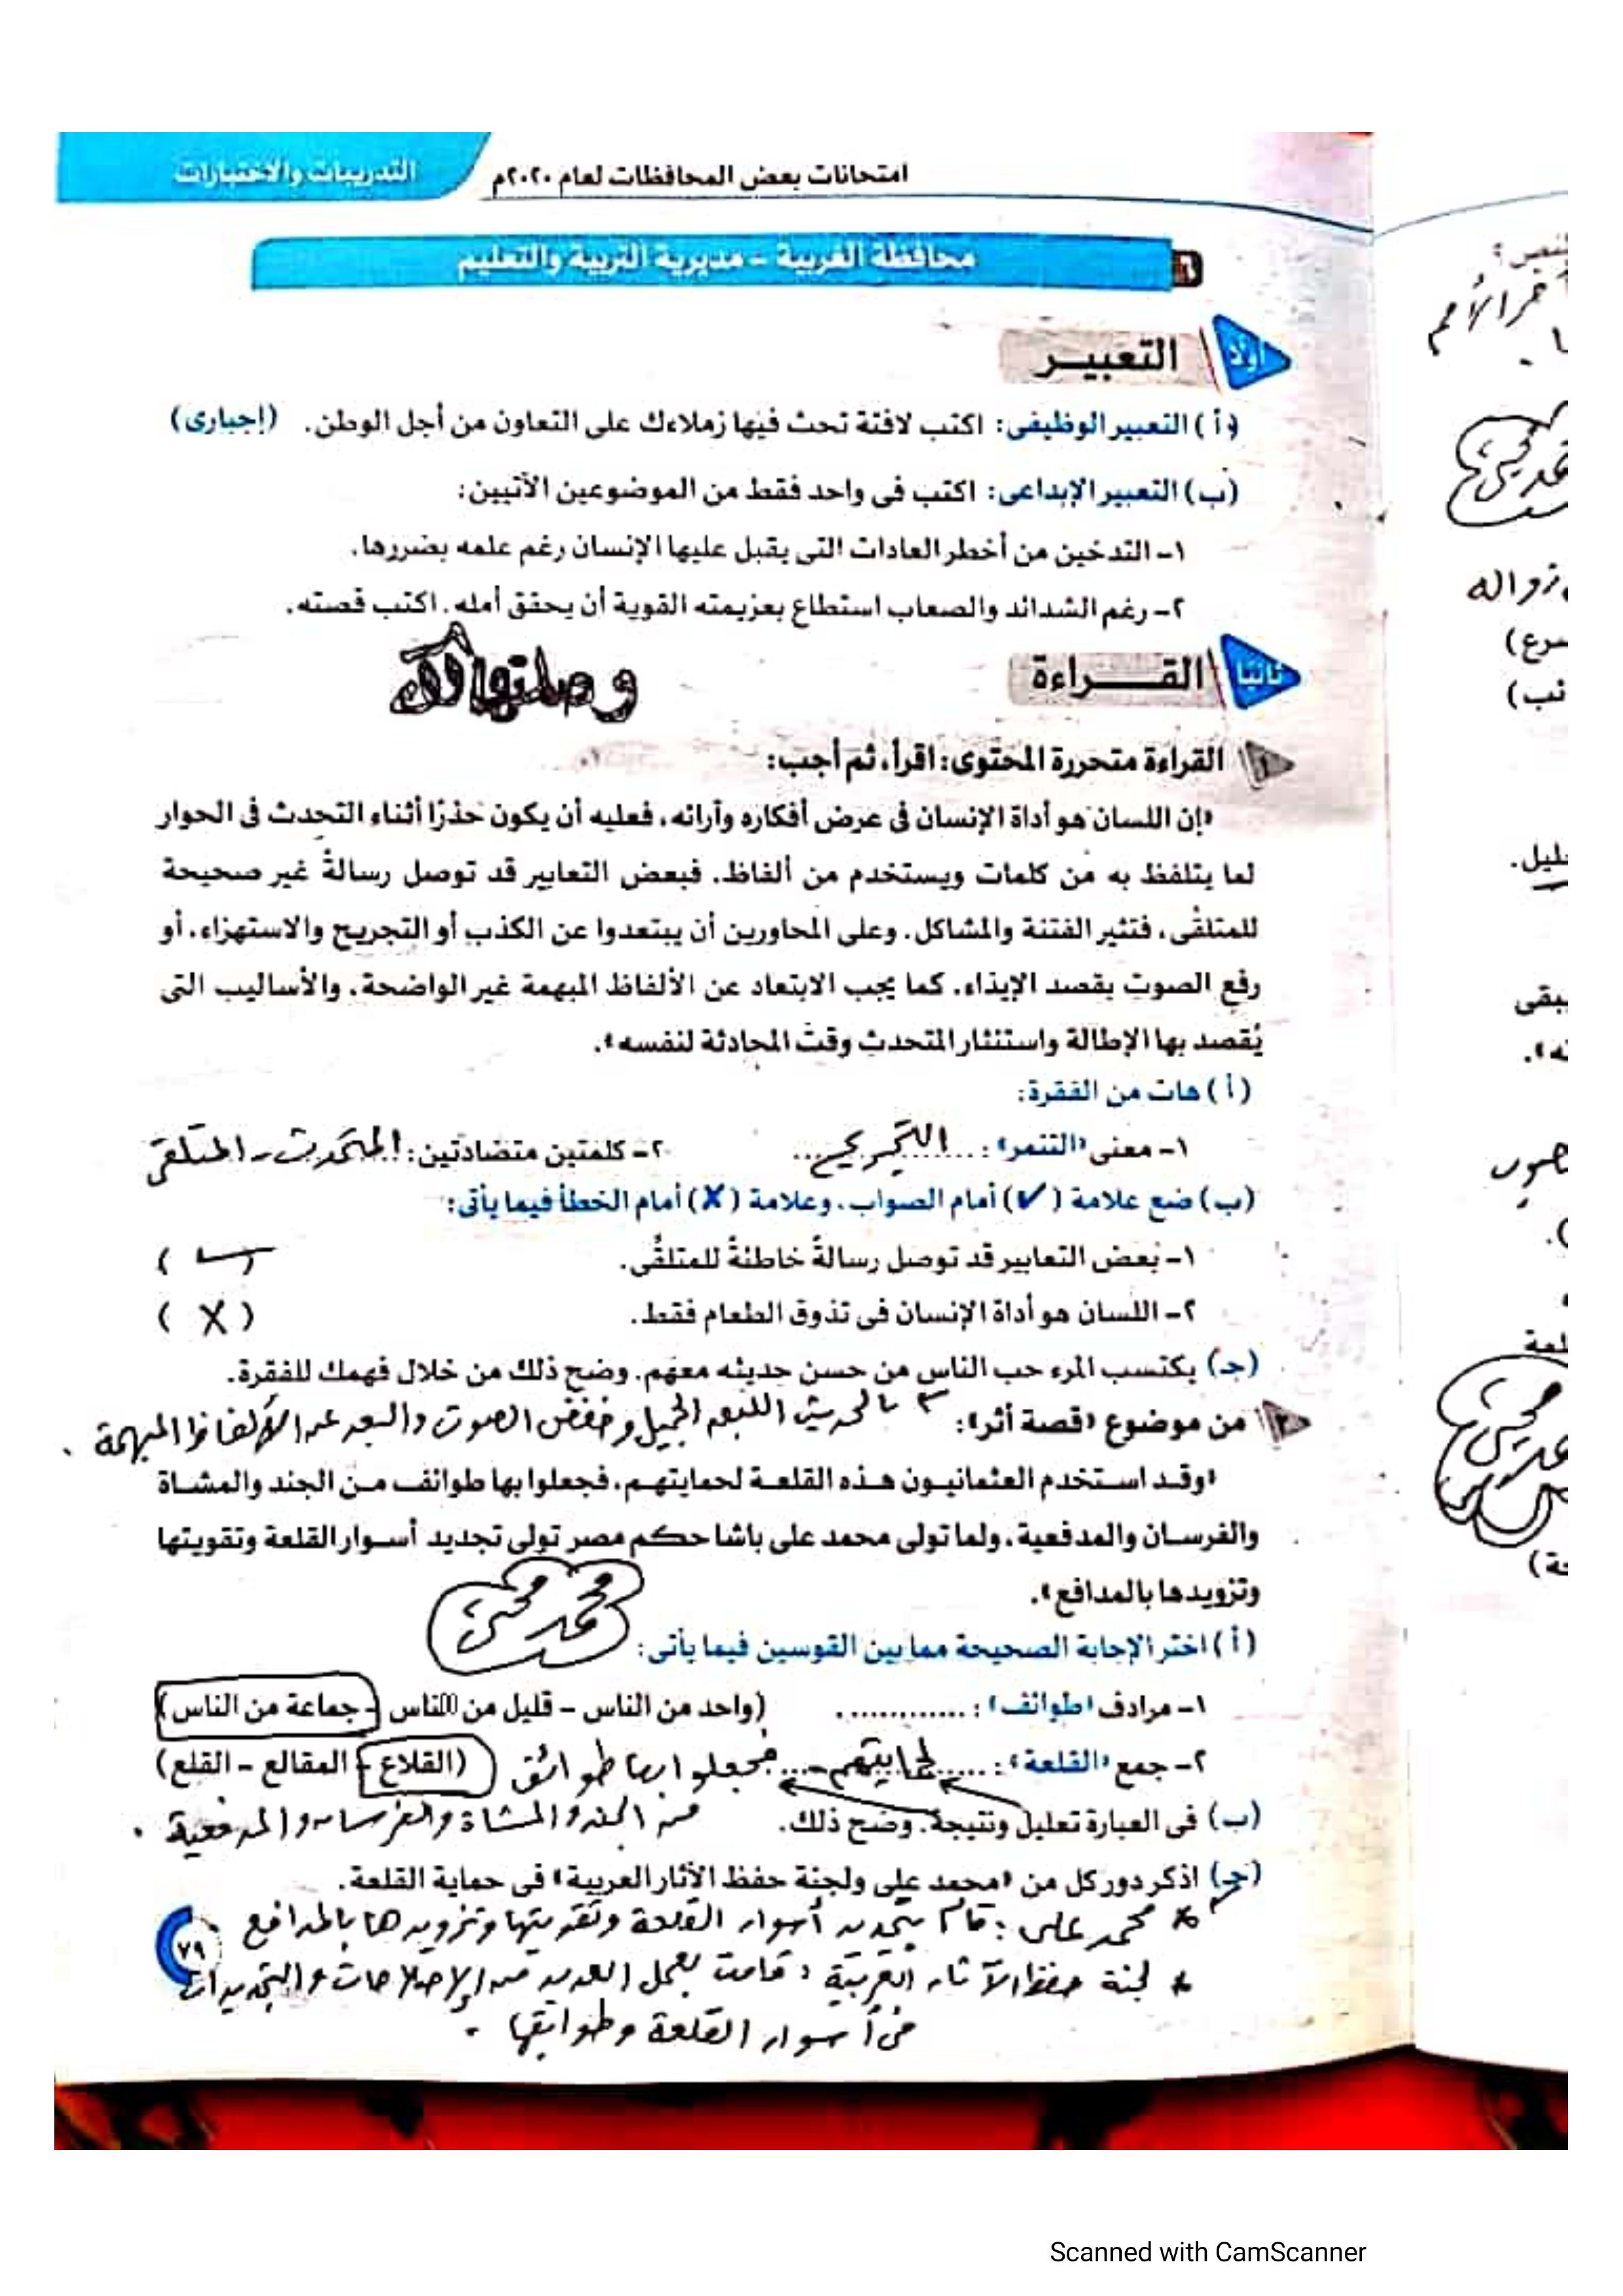 امتحانات بعض المحافظات لعام ٢٠٢٠م
التدريبات والاختبارات
٦ محافظة الغربية - مديرية التربية والتعليم
أولا التعبيـــر
(أ) التعبير الوظيفى: اكتب لافتة تحث فيها زملاءك على التعاون من أجل الوطن. (إجبارى)
(ب) التعبير الإبداعى: اكتب فى واحد فقط من الموضوعين الآتيين:
١- التدخين من أخطر العادات التى يقبل عليها الإنسان رغم علمه بضررها.
٢- رغم الشدائد والصعاب استطاع بعزيمته القوية أن يحقق أمله. اكتب قصته.
ثانيا القـــراءة
١ القراءة متحررة المحتوى: اقرأ، ثم أجب:
«إن اللسان هو أداة الإنسان فى عرض أفكاره وآرائه، فعليه أن يكون حذرًا أثناء التحدث فى الحوار
لما يتلفظ به من كلمات ويستخدم من ألفاظ. فبعض التعابير قد توصل رسالةً غير صحيحة
للمتلقى، فتثير الفتنة والمشاكل. وعلى المحاورين أن يبتعدوا عن الكذب أو التجريح والاستهزاء، أو
رفع الصوت بقصد الإيذاء. كما يجب الابتعاد عن الألفاظ المبهمة غير الواضحة، والأساليب التى
يُقصد بها الإطالة واستئثار المتحدث وقت المحادثة لنفسه».
(أ) هات من الفقرة:
١- معنى «التنمر»: التجريح ٢- كلمتين متضادتين: المتحدث - المتلقى
(ب) ضع علامة (✓) أمام الصواب، وعلامة (✗) أمام الخطأ فيما يأتى:
١- بعض التعابير قد توصل رسالةً خاطئةً للمتلقُّى. (✓)
٢- اللسان هو أداة الإنسان فى تذوق الطعام فقط. (X)
(جـ) يكتسب المرء حب الناس من حسن حديثه معهم. وضح ذلك من خلال فهمك للفقرة.
بالحديث اللين الجميل وخفض الصوت والبعد عن الألفاظ المبهمة .
٢ من موضوع «قصة أثر»:
«وقد استخدم العثمانيون هذه القلعة لحمايتهم، فجعلوا بها طوائف من الجند والمشاة
والفرسان والمدفعية، ولما تولى محمد على باشا حكم مصر تولى تجديد أسوار القلعة وتقويتها
وتزويدها بالمدافع».
(أ) اختر الإجابة الصحيحة مما بين القوسين فيما يأتى:
١- مرادف «طوائف»: ............ (واحد من الناس - قليل من الناس - جماعة من الناس)
٢- جمع «القلعة»: ............ (القلاع - المقالع - القلع)
لحمايتهم فجعلوا بها طوائف
(ب) فى العبارة تعليل ونتيجة. وضح ذلك.
من الجند والمشاة والفرسان والمدفعية .
(جـ) اذكر دور كل من «محمد على ولجنة حفظ الآثار العربية» فى حماية القلعة.
* محمد على : قام بتجديد أسوار القلعة وتقويتها وتزويدها بالمدافع
* لجنة حفظ الآثار العربية : قامت بعمل العديد من الإصلاحات والتجديدات
فى أسوار القلعة وطوابقها .
٧٩
Scanned with CamScanner